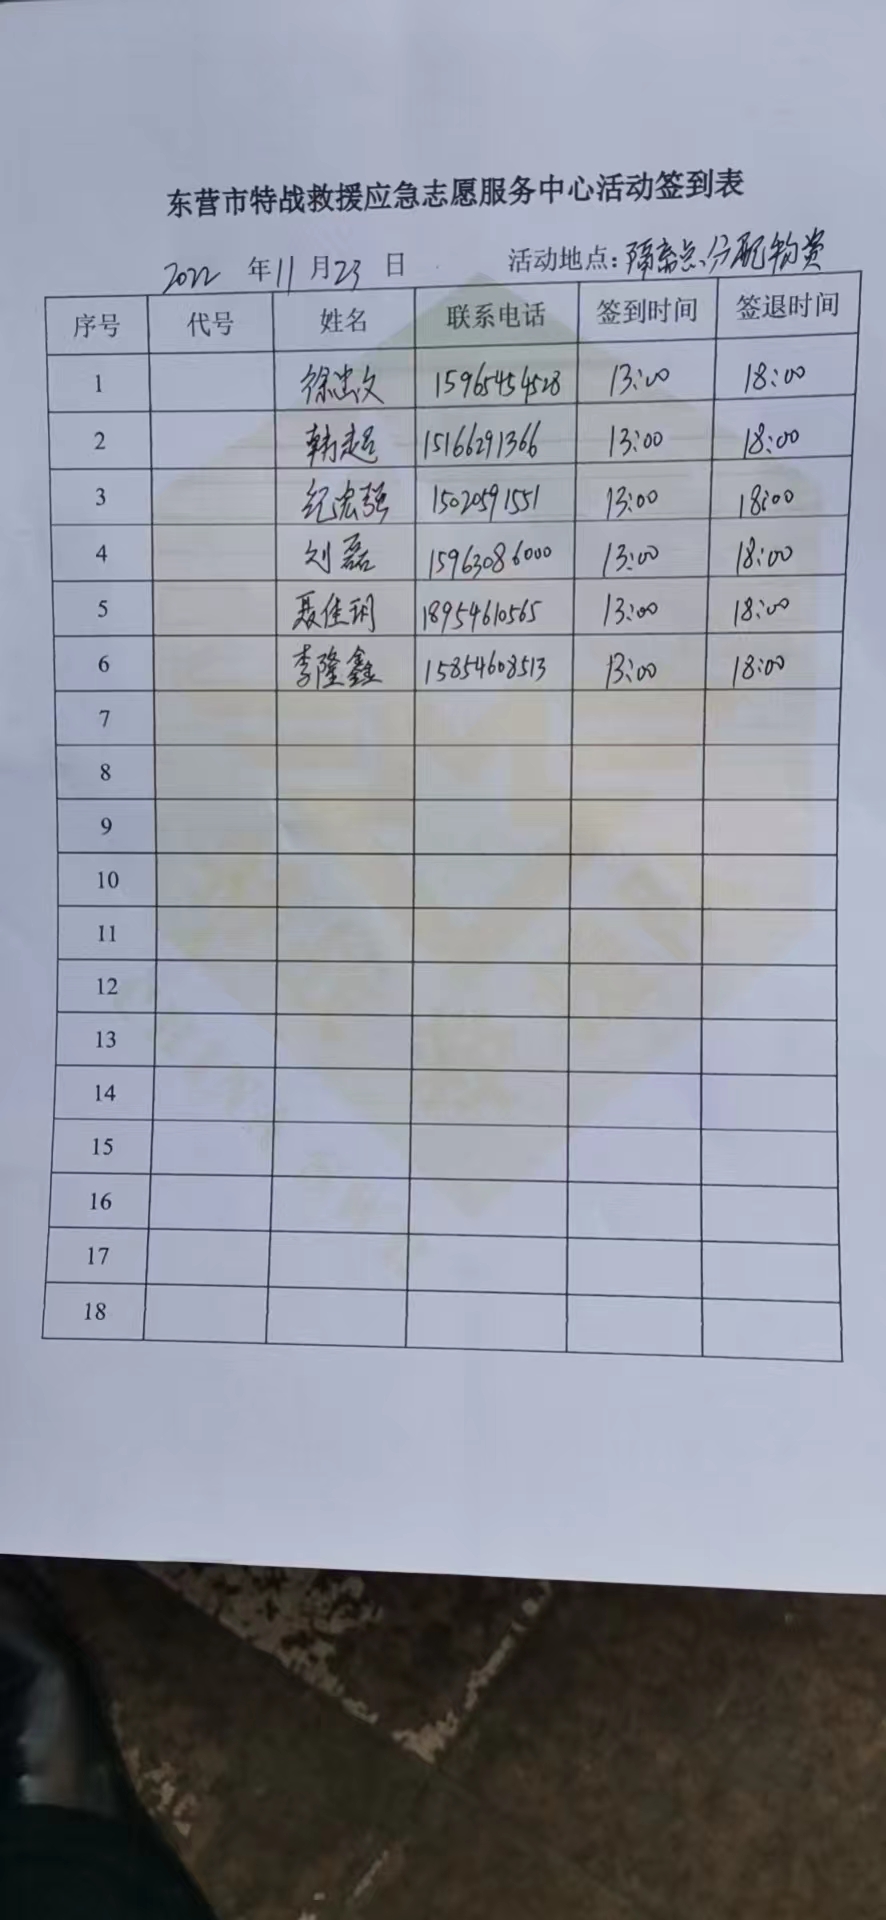 东营市特战救援应急志愿服务中心活动签到表
2022 年 11 月 23 日 活动地点：隔离点分配物资
序号 代号 姓名 联系电话 签到时间 签退时间
1 徐忠文 15965454528 13:00 18:00
2 韩超 15166291366 13:00 18:00
3 纪宏强 15020591551 13:00 18:00
4 刘磊 15963086000 13:00 18:00
5 聂佳玥 18954610565 13:00 18:00
6 李隆鑫 15854608513 13:00 18:00
7
8
9
10
11
12
13
14
15
16
17
18